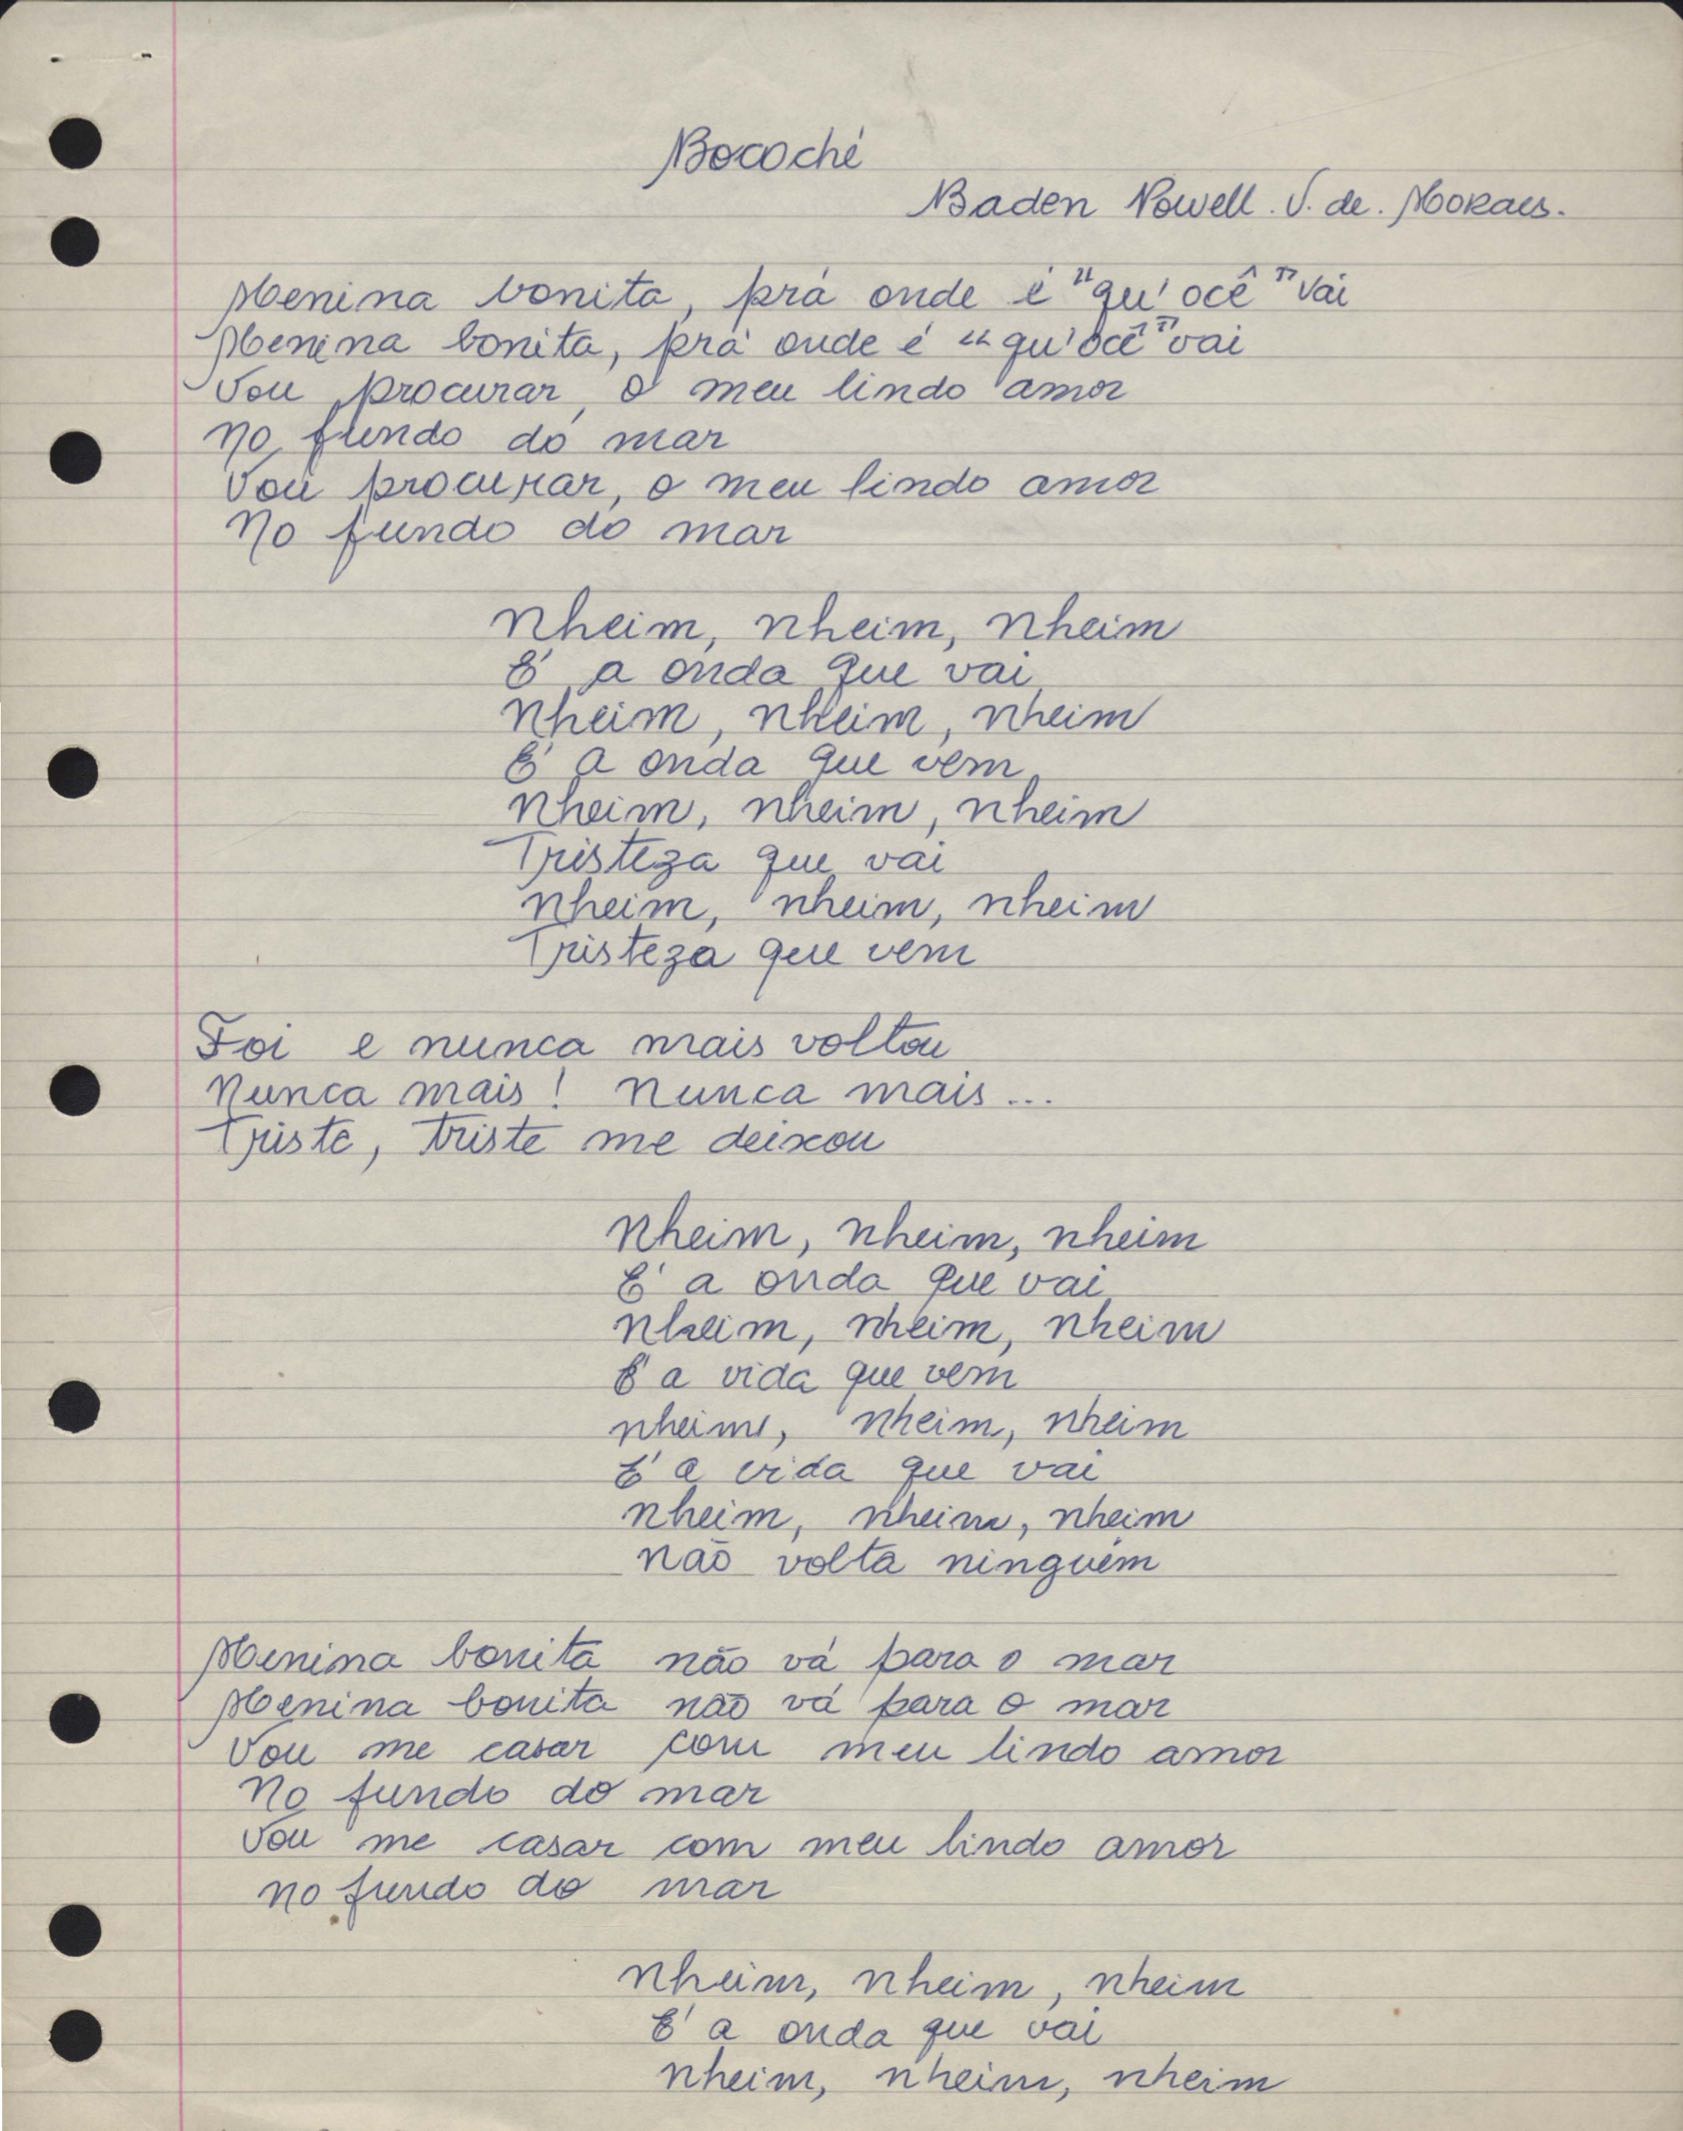 Bocoché
Baden Powell. V. de. Moraes.
Menina bonita, prá onde é "qu'ocê" vai
Menina bonita, prá onde é "qu'ocê" vai
Vou procurar, o meu lindo amor
No fundo do mar
Vou procurar, o meu lindo amor
No fundo do mar
Nheim, nheim, nheim
É a onda que vai
Nheim, nheim, nheim
É a onda que vem
Nheim, nheim, nheim
Tristeza que vai
Nheim, nheim, nheim
Tristeza que vem
Foi e nunca mais voltou
Nunca mais! Nunca mais...
Triste, triste me deixou
Nheim, nheim, nheim
É a onda que vai
Nheim, nheim, nheim
É a vida que vem
nheim, nheim, nheim
É a vida que vai
nheim, nheim, nheim
não volta ninguém
Menina bonita não vá para o mar
Menina bonita não vá para o mar
Vou me casar com meu lindo amor
No fundo do mar
Vou me casar com meu lindo amor
no fundo do mar
nheim, nheim, nheim
É a onda que vai
nheim, nheim, nheim